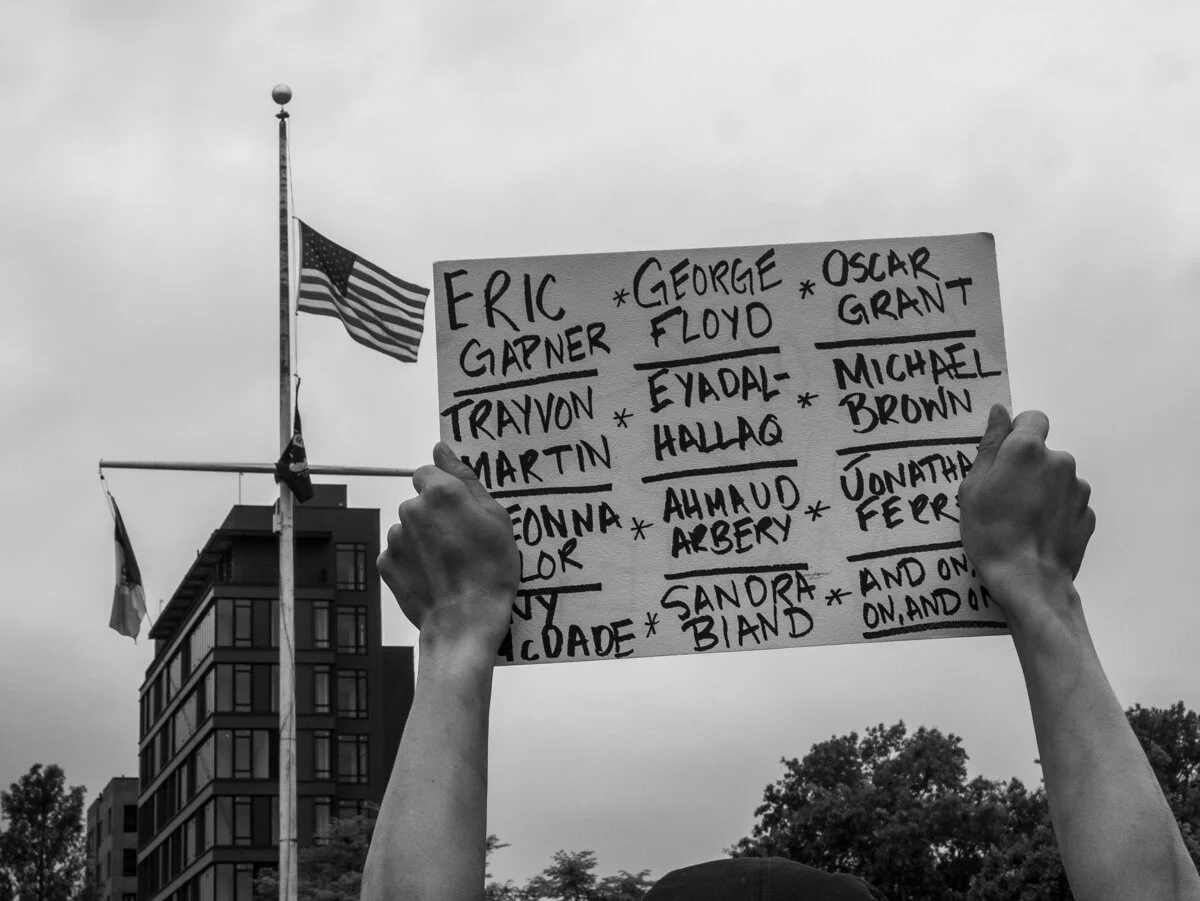 ERIC
GARNER
* GEORGE
FLOYD
* OSCAR
GRANT
TRAYVON
MARTIN
* EYADAL-
HALLAQ
* MICHAEL
BROWN
EONNA
LOR
* AHMAUD
ARBERY
* JONATHA
FERR
NY
McDADE
* SANDRA
BLAND
* AND ON,
ON, AND ON